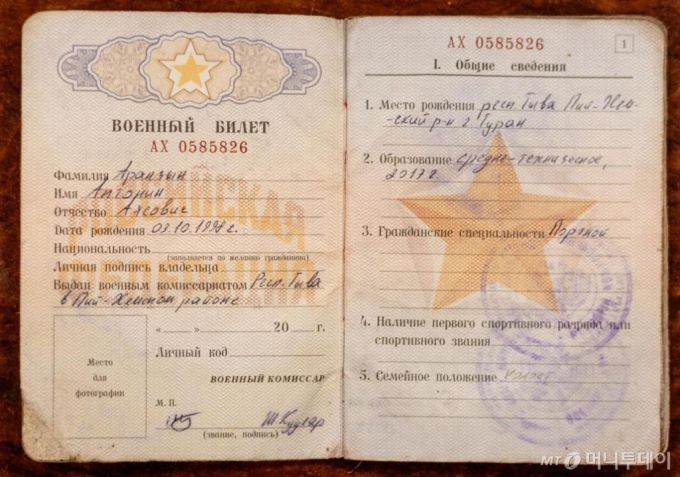 ВОЕННЫЙ БИЛЕТ
АХ 0585826
Фамилия Аранчын
Имя
Отчество Аясович
Дата рождения 03.10.1997г.
Национальность
(заполняется по желанию гражданина)
Личная подпись владельца
Выдан военным комиссариатом Респ. Тыва
в Пий-Хемском районе
«   »   20   г.
Место
для
фотографии
Личный код
ВОЕННЫЙ КОМИССАР
М. П.
(звание, подпись)
АХ 0585826
1
I. Общие сведения
1. Место рождения респ Тыва Пий-Хем-
ский р-н г. Туран
2. Образование средне-техническое,
2017г.
3. Гражданские специальности
4. Наличие первого спортивного разряда или
спортивного звания
5. Семейное положение холост
MT 머니투데이